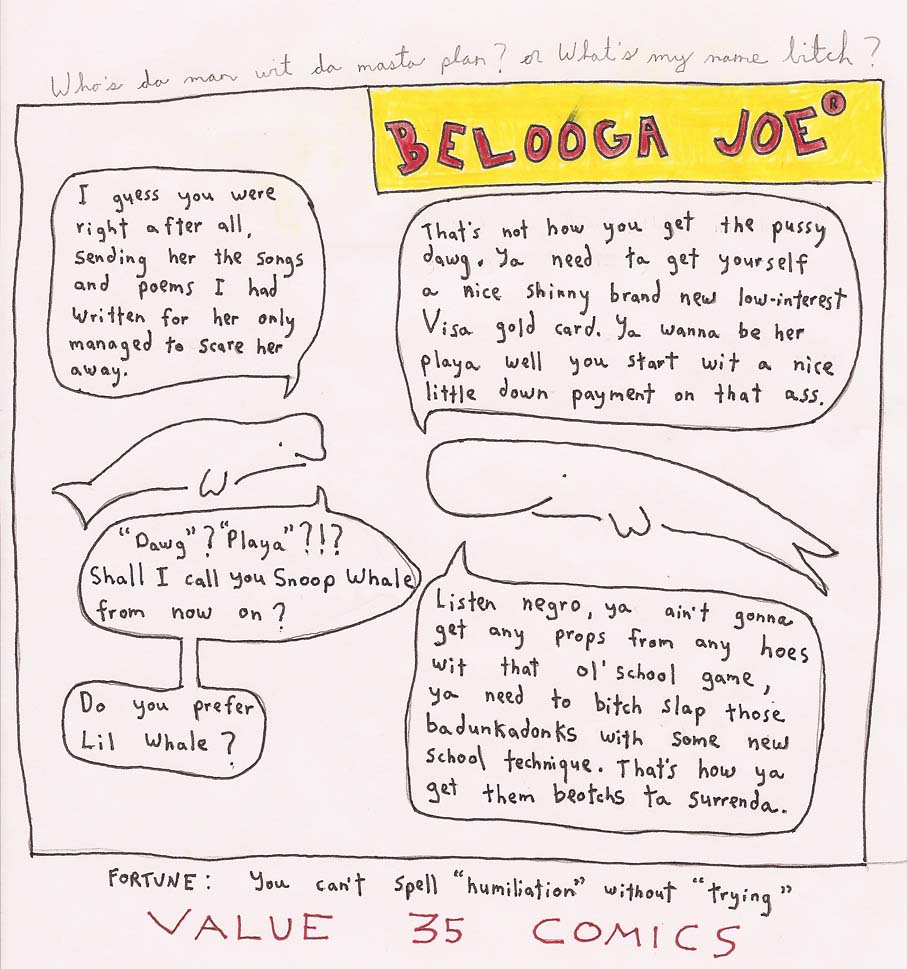 Who's da man wit da masta plan? or What's my name bitch?
BELOOGA JOE®
I guess you were
right after all,
sending her the songs
and poems I had
written for her only
managed to scare her
away.
That's not how you get the pussy
dawg. Ya need ta get yourself
a nice shinny brand new low-interest
Visa gold card. Ya wanna be her
playa well you start wit a nice
little down payment on that ass.
"Dawg"? "Playa"?!?
Shall I call you Snoop Whale
from now on?
Do you prefer
Lil Whale?
Listen negro, ya ain't gonna
get any props from any hoes
wit that ol' school game,
ya need to bitch slap those
badunkadonks with some new
school technique. That's how ya
get them beotchs ta surrenda.
FORTUNE: You can't spell "humiliation" without "trying"
VALUE 35 COMICS